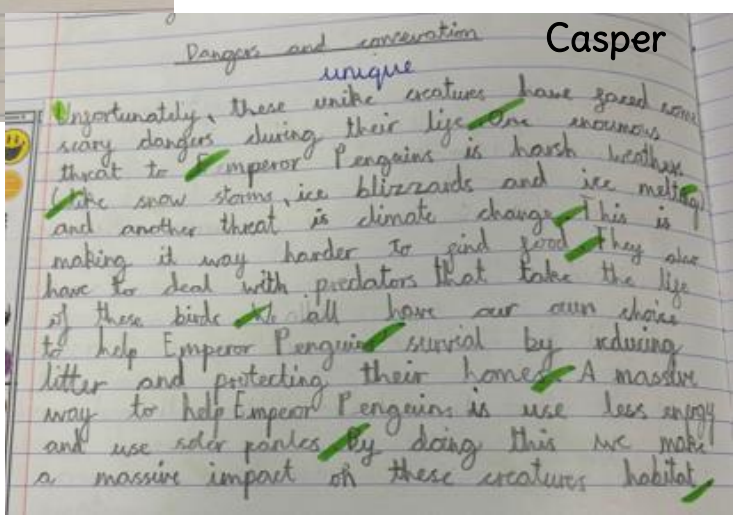 Casper
Dangers and concevation
unique
Unfortunately, these unike creatures have faced some
scary dangers during their life. One enoumous
threat to Emperor Pengains is harsh weather.
Like snow storms, ice blizzards and ice melting
and another threat is climate change. This is
making it way harder to find food. They also
have to deal with predators that take the life
of these birds. We all have our own choice
to help Emperor Penguins survial by reducing
litter and protecting their homes. A massive
way to help Emperor Pengains is use less energy
and use soler panles. By doing this we make
a massive impact on these creatures habitat.